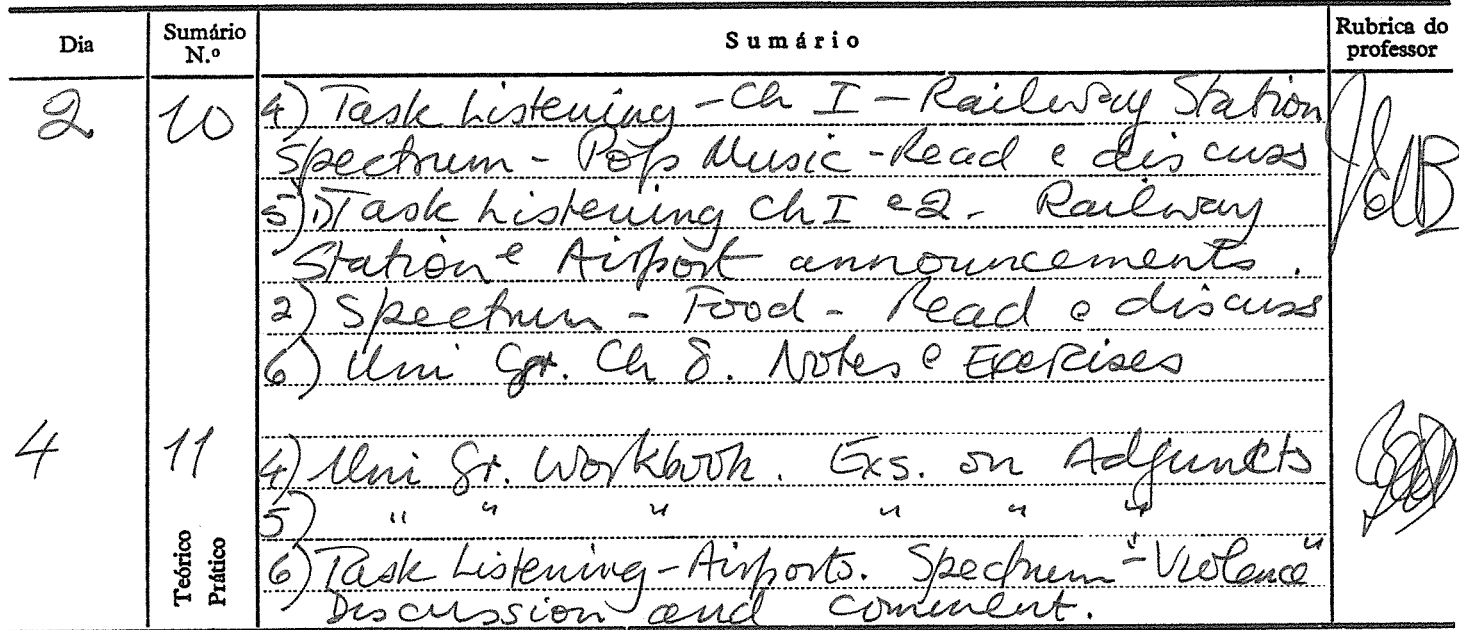 Dia Sumário N.º Sumário Rubrica do professor
2 10 4) Task Listening - Ch I - Railway Station
Spectrum - Pop Music - Read e discuss
5) 1) Task Listening Ch I e 2 - Railway
Station e Airport announcements.
2) Spectrum - Food - Read e discuss
6) Uni Gr. Ch 8. Notes e Exercises
4 11 4) Uni Gr. Workbook. Exs. on Adjuncts
5) " " " " " "
Teórico Prático
6) Task Listening - Airports. Spectrum - "Violence"
Discussion and comment.